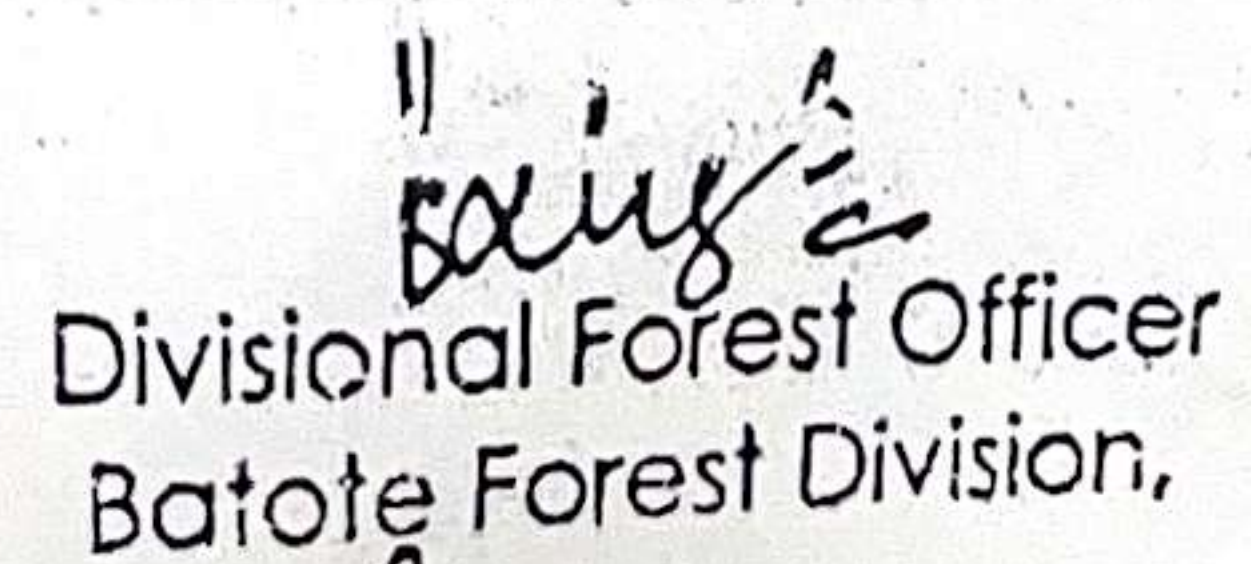 Divisional Forest Officer
Batote Forest Division,